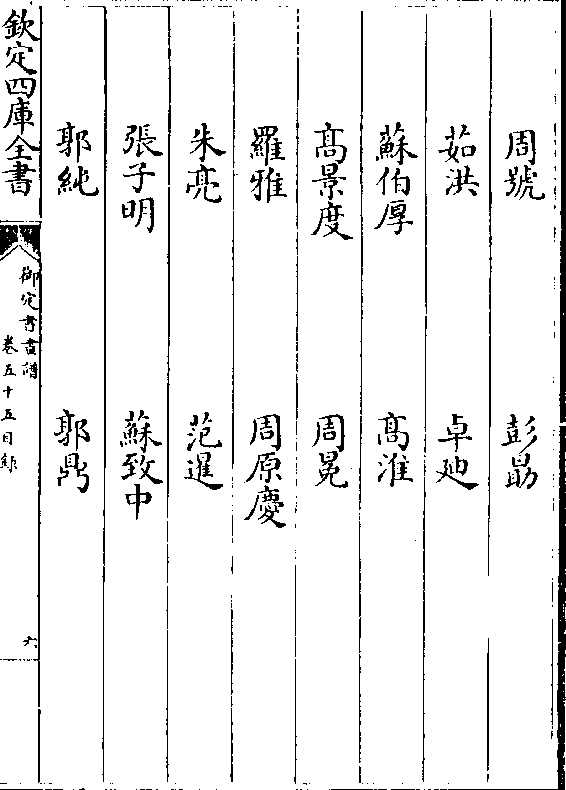 周號　彭勗
茹洪　卓廸
蘇伯厚　髙淮
髙景度　周冕
羅雅　周原慶
朱亮　范暹
張子明　蘇致中
郭純　郭鼎
欽定四庫全書
御定書畫譜
卷五十五目錄
六